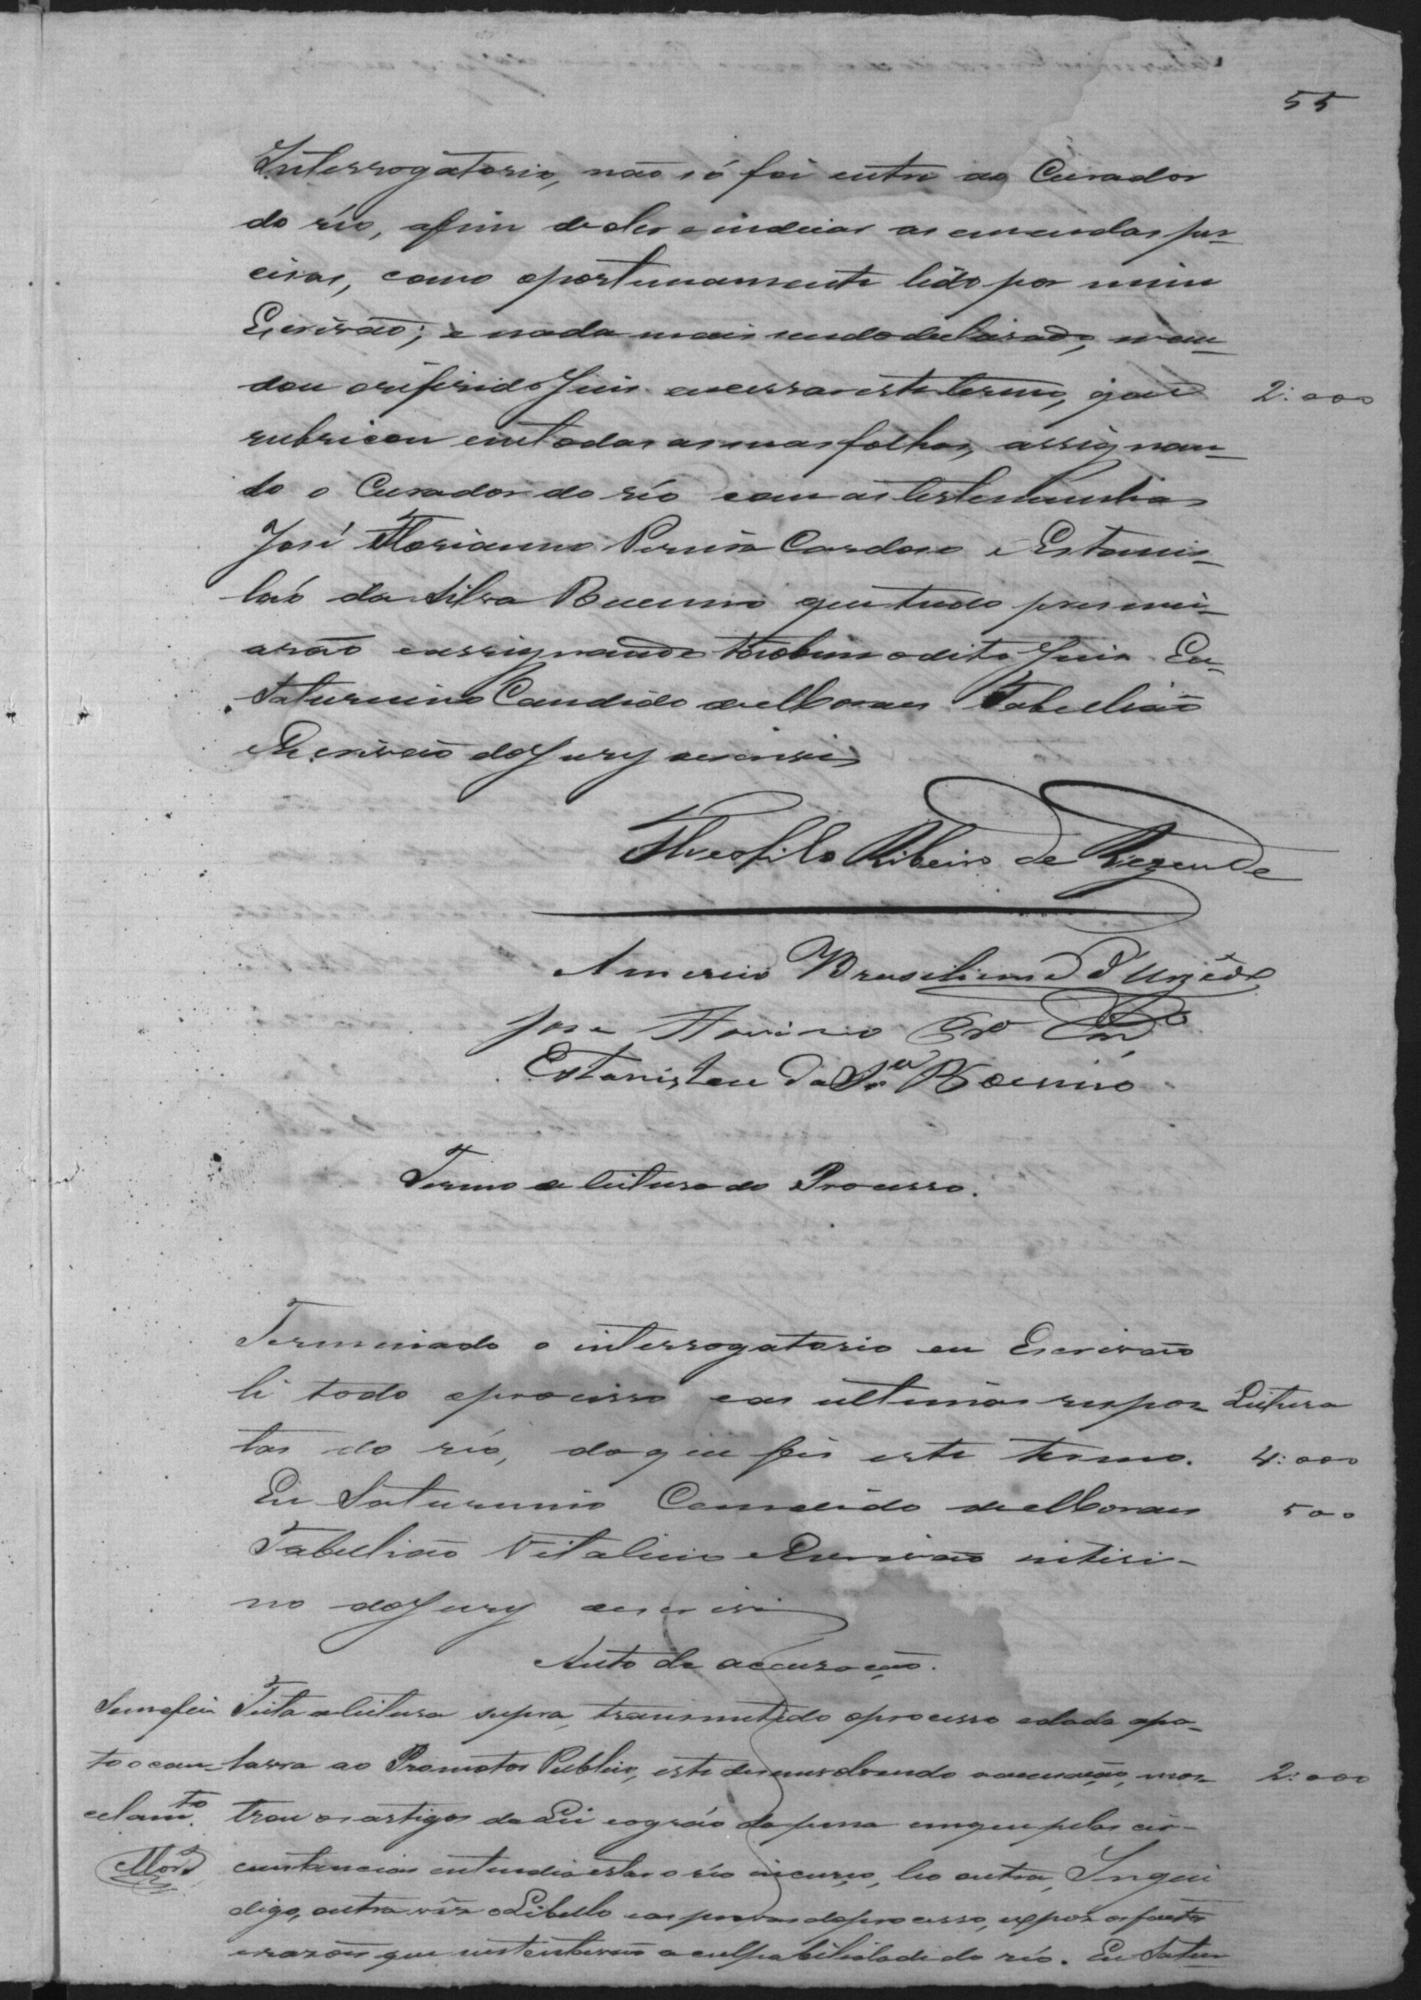 55
Interrogatorio, não só foi entre ao Curador
do réo, afim de ler e indicar as emendas pre-
cisas, como oportunamente lido por mim
Escrivão; e nada mais sendo declarado, man-
dou o referido Juiz encerrar este termo, que
2:000
rubricou em todas as suas folhas, assignan-
do o Curador do réo com as testemunhas
José Florianno Pereira Cardoso e Estanis-
láo da Silva Bueno que tudo presenci-
arão e assignando tãobem o dito Juiz. Eu
Saturnino Candido de Moraes Tabellião
e Escrivão do Jury escrevi
Theofilo Ribeiro de Rezende
Americo Brasiliense d'
Jose
Estanislau da Sª
Termo de leitura do Processo.
Terminado o interrogatorio eu Escrivão
li todo o processo e as ultimas respos-
Leitura
tas do réo, do que fis este termo.
4:000
Eu Saturnino Candido de Moraes
500
Tabellião Vitalicio e Escrivão interi-
no do Jury escrevi
Auto de accusação.
Feita a leitura supra, transmetido o processo e dada a pa-
lavra ao Promotor Publico, este desenvolvendo a accusação, mos-
2:000
trou os artigos da Lei e o gráo da pena em que pelas cir-
cunstancias entendia estar o réo incurso, leo outra,
digo, outra vez o Libello e as provas do processo, expoz os factos
e razões que sustentavão a culpabilidade do réo. Eu Satur-